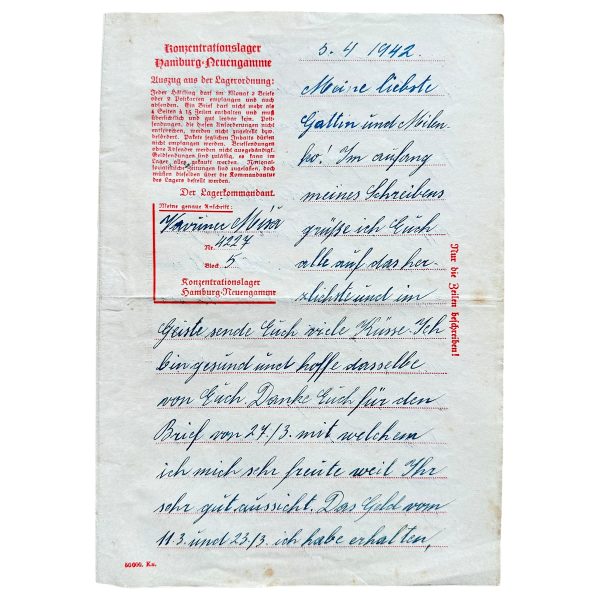 Konzentrationslager
Hamburg-Neuengamme
Auszug aus der Lagerordnung:
Jeder Häftling darf im Monat 2 Briefe
oder 2 Postkarten empfangen und auch
absenden. Ein Brief darf nicht mehr als
4 Seiten à 15 Zeilen enthalten und muß
übersichtlich und gut lesbar sein. Post-
sendungen, die diesen Anforderungen nicht
entsprechen, werden nicht zugestellt bzw.
befördert. Pakete jeglichen Inhalts dürfen
nicht empfangen werden. Briefsendungen
ohne Absender werden nicht ausgehändigt.
Geldsendungen sind zulässig, es kann im
Lager alles gekauft werden. National-
sozialistische Zeitungen sind zugelassen, doch
müssen dieselben über die Kommandantur
des Lagers bestellt werden.
Der Lagerkommandant.
Meine genaue Anschrift:
Míša
Nr. 4227
Block 5
Konzentrationslager
Hamburg-Neuengamme
5. 4 1942.
Meine liebste
Gattin und Milen-
ko! Im anfang
meines Schreibens
grüße ich Euch
alle auf das her-
zlichste und im
Geiste sende Euch viele Küsse. Ich
bin gesund und hoffe dasselbe
von Euch. Danke Euch für den
Brief von 27./3. mit welchem
ich mich sehr freute weil Ihr
sehr gut aussicht. Das Geld vom
11.3. und 23./3. ich habe erhalten,
Nur die Zeilen beschreiben!
60000. Kn.